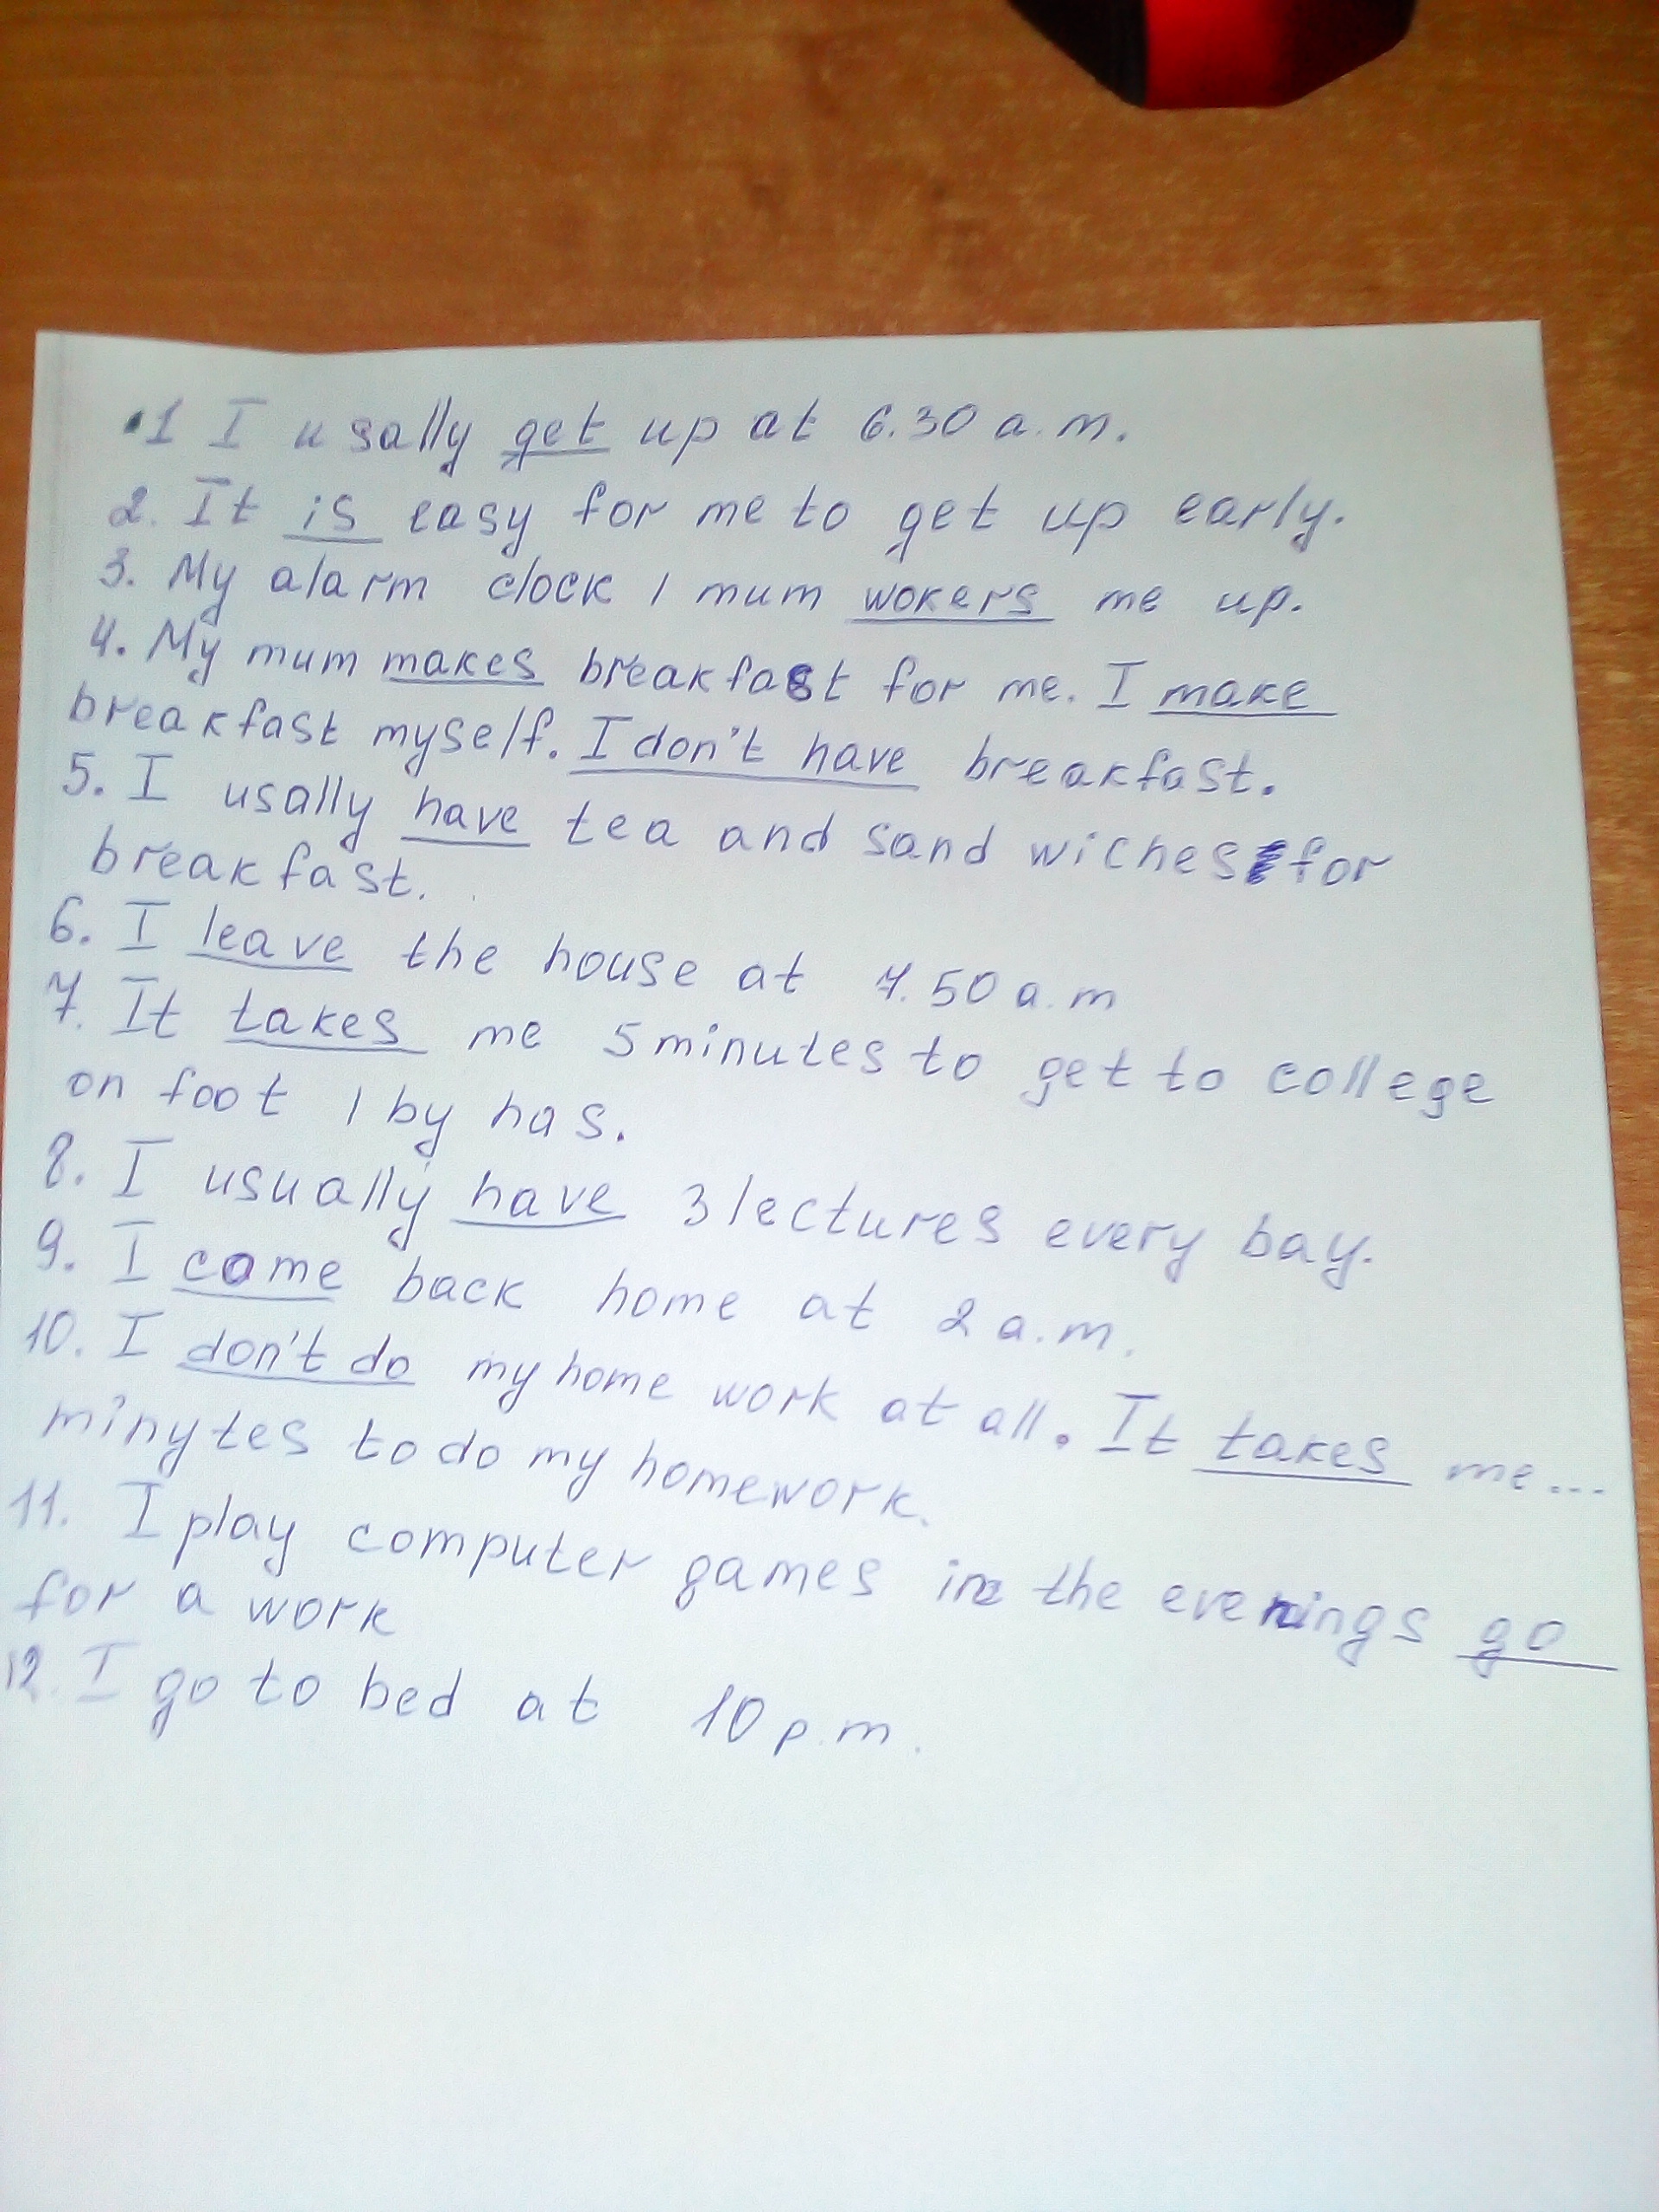 1 I usally get up at 6.30 a.m.
2. It is easy for me to get up early.
3. My alarm clock / mum wokers me up.
4. My mum makes breakfast for me. I make
breakfast myself. I don't have breakfast.
5. I usally have tea and sand wiches for
breakfast.
6. I leave the house at 7.50 a.m
7. It takes me 5 minutes to get to college
on foot / by has.
8. I usually have 3 lectures every bay.
9. I come back home at 2 a.m.
10. I don't do my home work at all. It takes me...
minytes to do my homework.
11. I play computer games in the evenings go
for a work
12. I go to bed at 10 p.m.